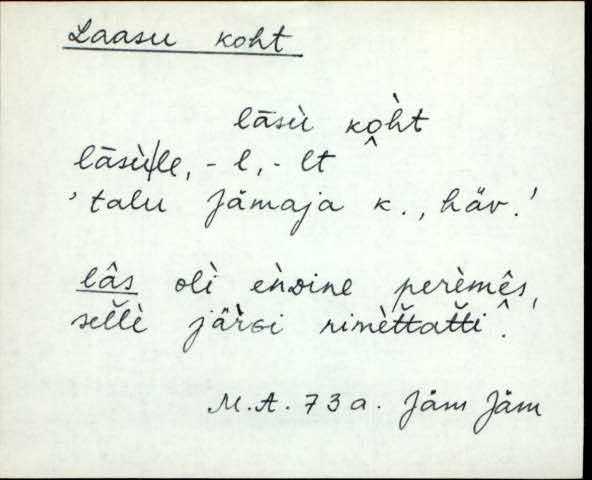 Laasu koht
lāsù kòht
lāsù|le, - l, - lt
'talu Jämaja k., häv.'
lâs olì eǹᴅine perèmês,
sellè jäřɢi nimèt̆t̆at̆t̆i.
M.A. 73 a. Jäm Jäm